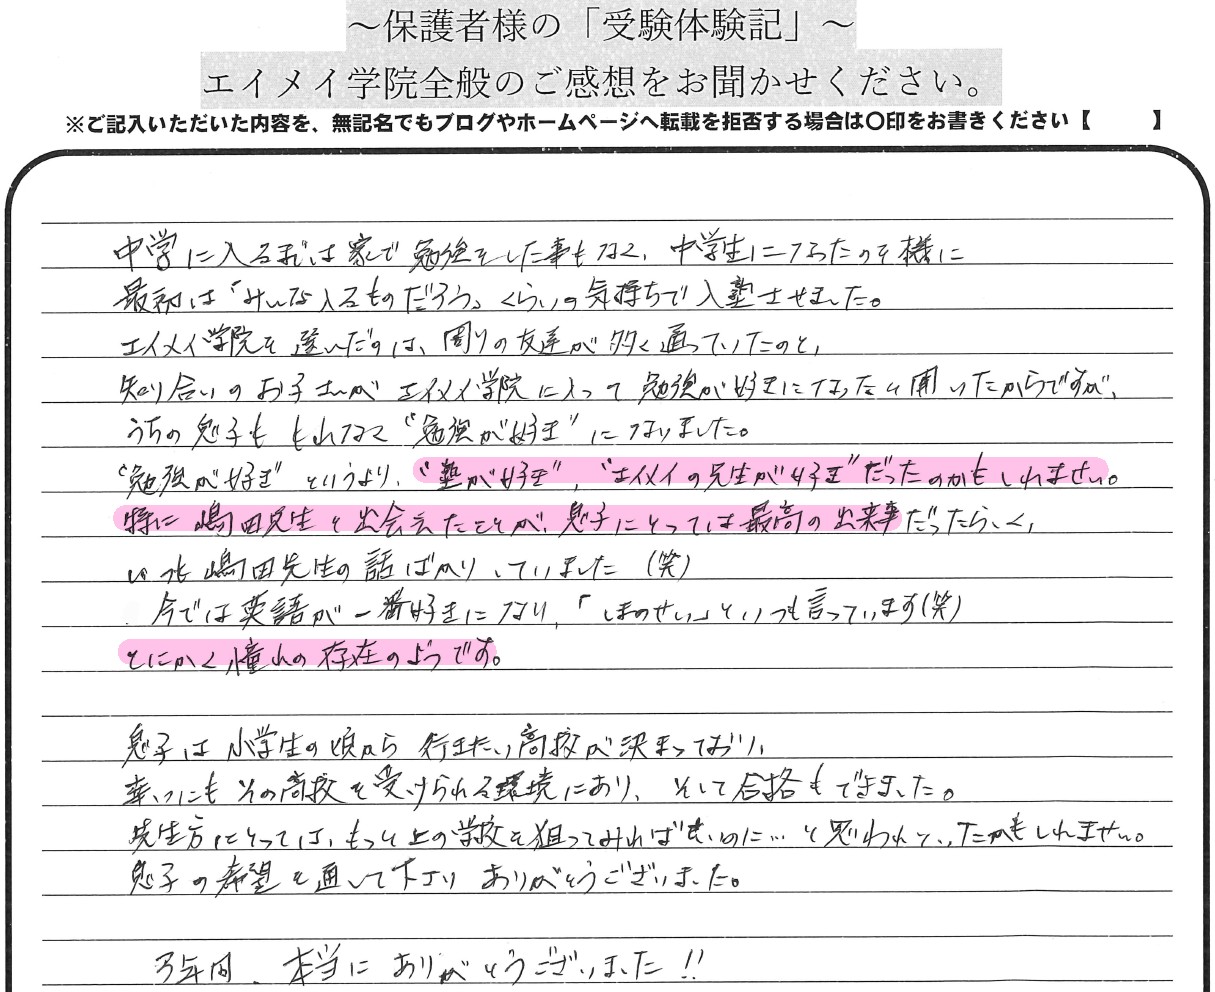 ～保護者様の「受験体験記」～
エイメイ学院全般のご感想をお聞かせください。
※ご記入いただいた内容を、無記名でもブログやホームページへ転載を拒否する場合は〇印をお書きください【　　　】
中学に入るまでは家で勉強をした事もなく、中学生になったのを機に
最初は「みんな入るものだろう」くらいの気持ちで入塾させました。
エイメイ学院を選んだのは、周りの友達が多く通っていたのと、
知り合いのお子さんがエイメイ学院に入って勉強が好きになったと聞いたからですが、
うちの息子ももれなく“勉強が好き”になりました。
“勉強が好き”というより、“塾が好き”、“エイメイの先生が好き”だったのかもしれません。
特に嶋田先生と出会えたことが、息子にとっては最高の出来事だったらしく、
いつも嶋田先生の話ばかりしていました（笑）
今では英語が一番好きになり、「しまのせい」といつも言っています（笑）
とにかく憧れの存在のようです。
息子は小学生の頃から行きたい高校が決まっており、
幸いにもその高校を受けられる環境にあり、そして合格もできました。
先生方にとっては、もっと上の学校を狙ってみれば良いのに…と思われていたかもしれません。
息子の希望を通して下さりありがとうございました。
3年間、本当にありがとうございました!!